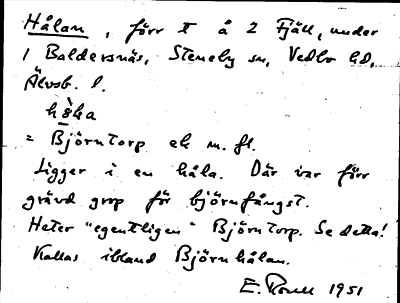 Hålan, förr t å 2 Fjäll, under
1 Baldersnäs, Steneby sn, Vedbo hd,
Älvsb. l.
hɵ̀ka
= Björntorp ek m. fl.
Ligger i en håla. Där var förr
grävd grop för björnfångst.
Heter "egentligen" Björntorp. Se detta!
Kallas ibland Björnhålan.
E. 1951